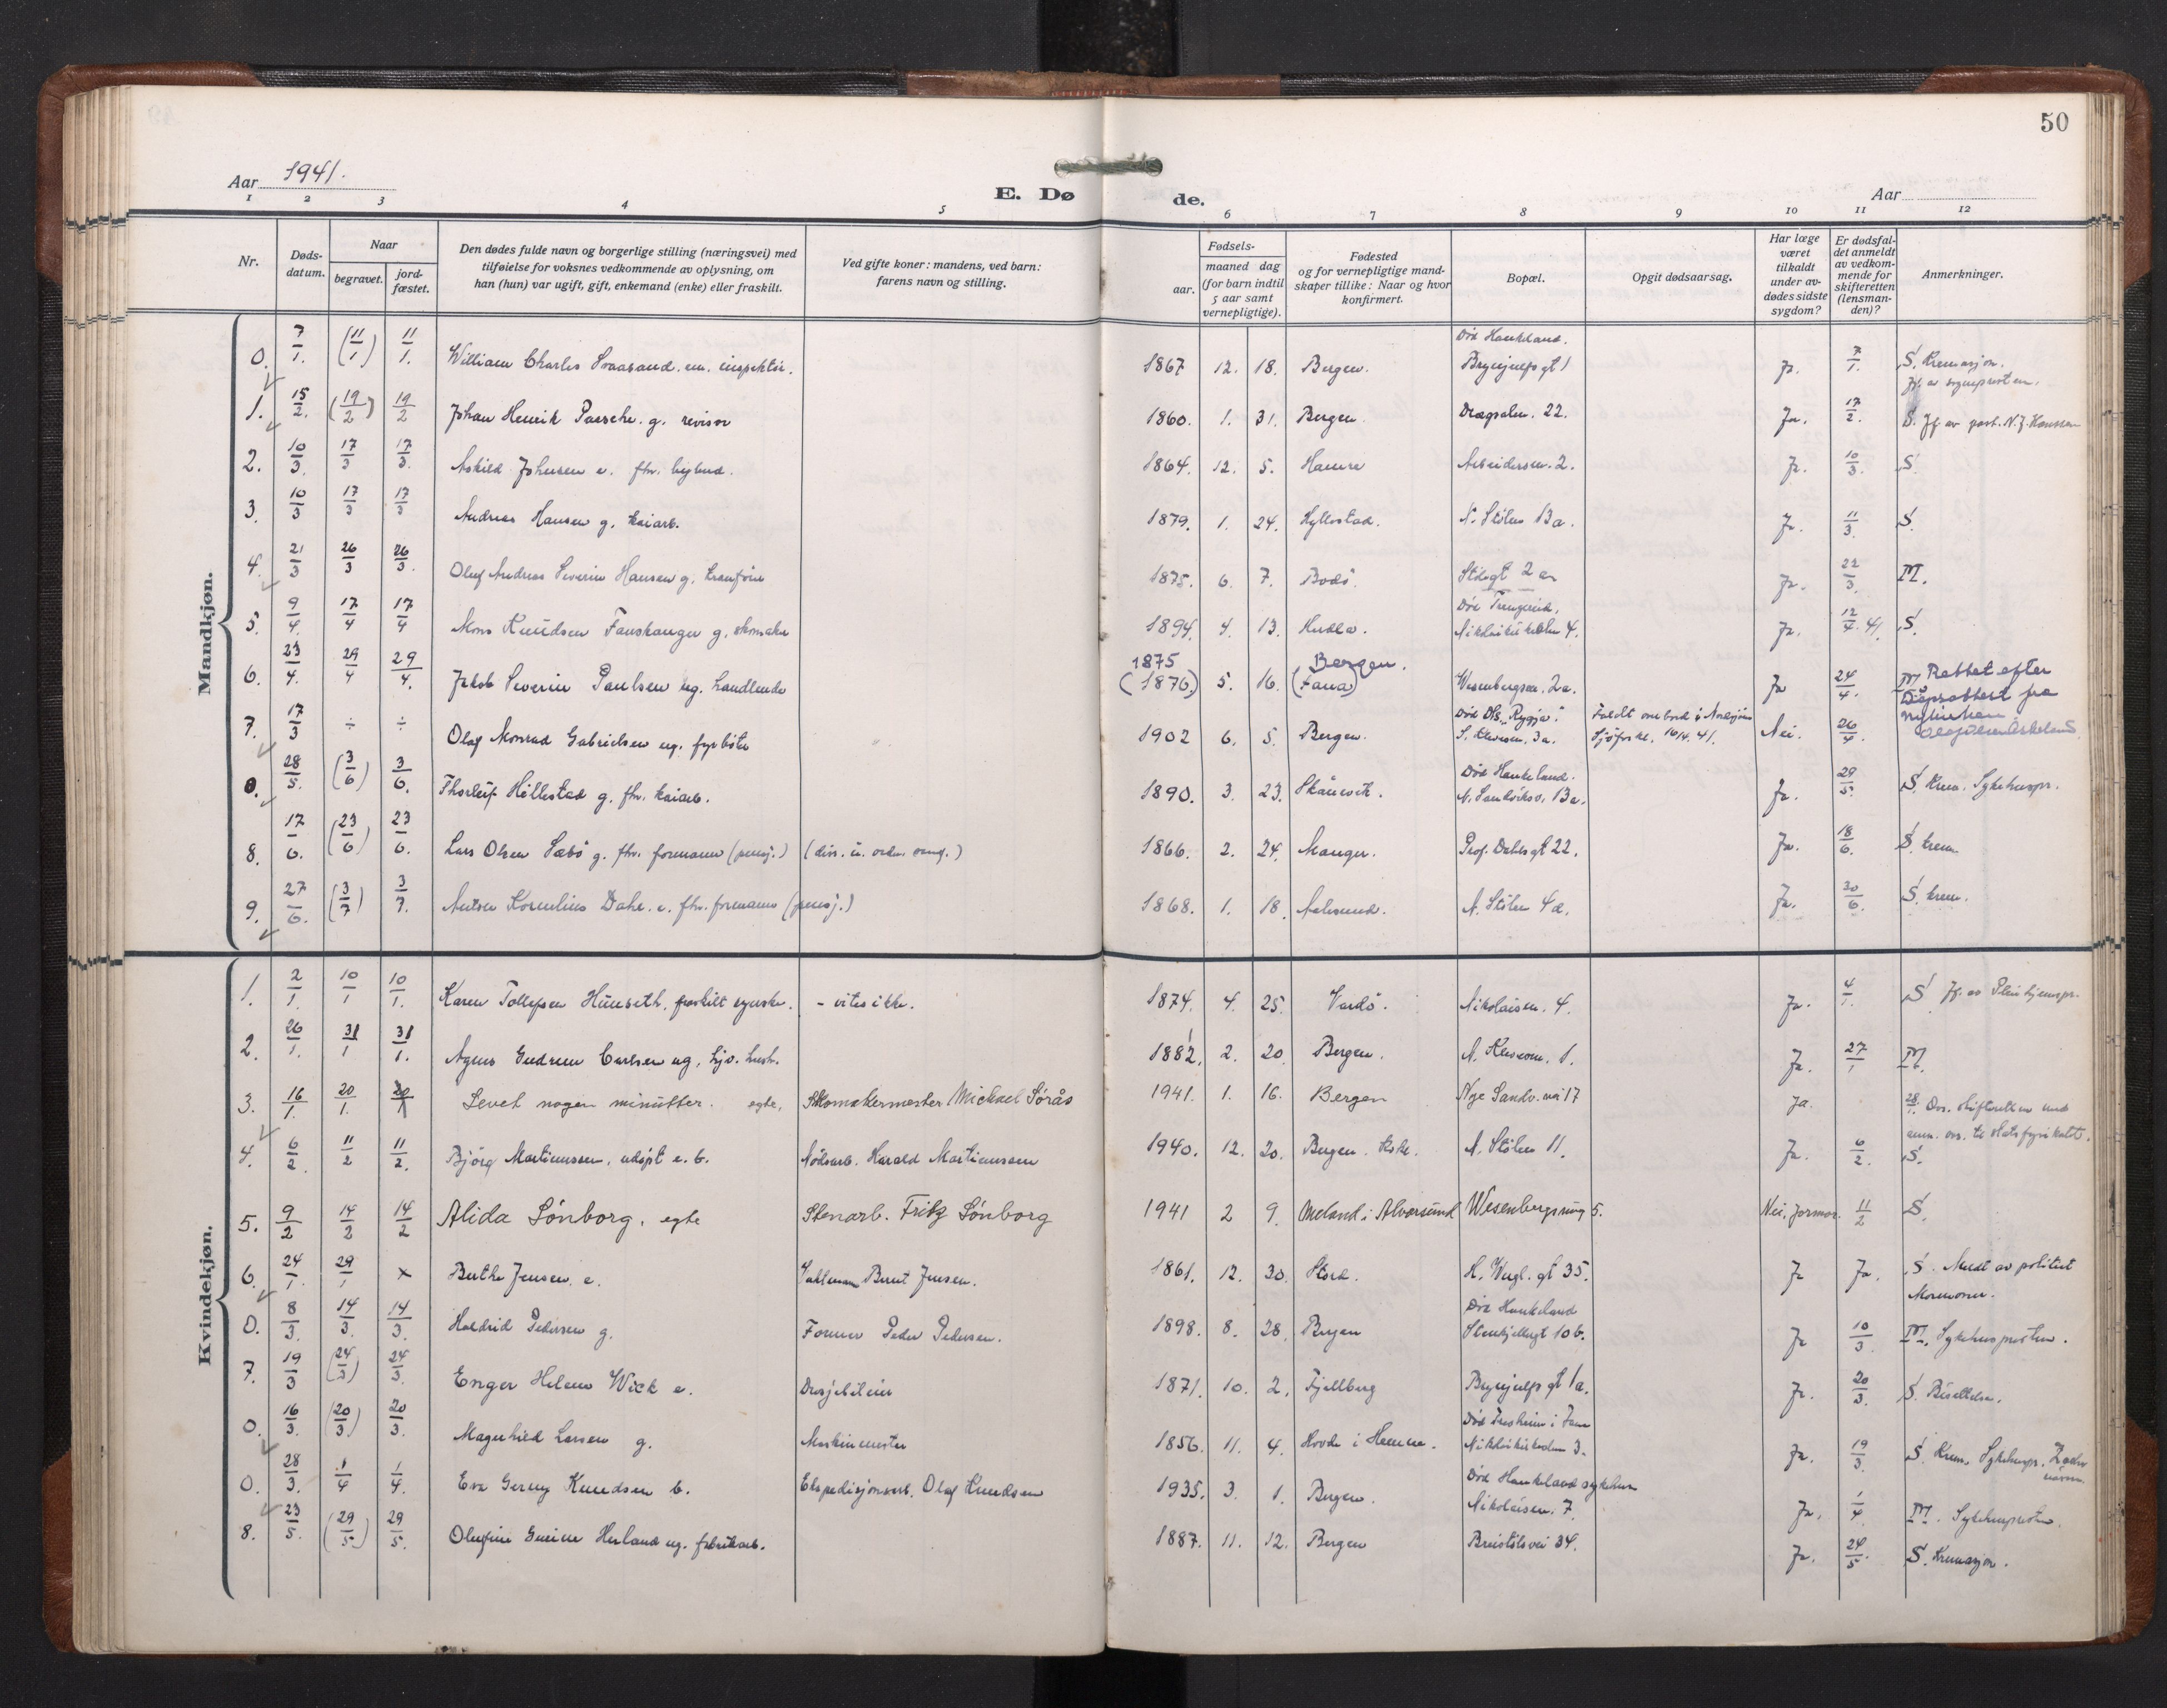 50
Aar 1941.
E. Døde.
Aar
1 2 3 4 5 6 7 8 9 10 11 12
Nr.
Døds-
datum.
Naar
begravet.
jord-
fæstet.
Den dødes fulde navn og borgerlige stilling (næringsvei) med
tilføielse for voksnes vedkommende av oplysning, om
han (hun) var ugift, gift, enkemand (enke) eller fraskilt.
Ved gifte koner: mandens, ved barn:
farens navn og stilling.
Fødsels-
aar.
maaned dag
(for barn indtil
5 aar samt
vernepligtige).
Fødested
og for vernepligtige mand-
skaper tillike: Naar og hvor
konfirmert.
Bopæl.
Opgit dødsaarsag.
Har læge
været
tilkaldt
under av-
dødes sidste
sygdom?
Er dødsfal-
det anmeldt
av vedkom-
mende for
skifteretten
(lensman-
den)?
Anmerkninger.
Mandkjøn.
Død Haukeland.
0. 7/1. (11/1) 11/1. William Charles em. inspektör. 1867 12. 18. Bergen. gt 1 Ja. 7/1. S. Kremasjon.
1. 15/2. (19/2) 19/2 Johan Henrik Paasche. g. revisor 1860. 1. 31. Bergen. 22. Ja. 17/2. S. Jf. av past. N. J. Hanssen
2. 10/3. 17/3 17/3. Askild Johnsen e. fhv. bybud. 1864. 12. 5. Hamre 2. Ja. 10/3. S.
3. 10/3 17/3 17/3 Andreas Hansen g. kaiarb. 1879. 1. 24. Hyllestad. N. Stölen 13a. Ja. 11/3. S.
4. 21/3 26/3 26/3. Olaf Andreas Severin Hansen g. 1875. 6. 7. Bodö. 2a Ja. 22/3. M.
Död
5. 9/4. 17/4 17/4 Mons Knudsen Fauskanger g. skomaker 1894. 4. 13. 4. Ja. 12/4. 41. S.
1875 Bergen.
6. 23/4. 29/4 29/4. Jakob Severin Paulsen ug. handlende (1876) 5. 16. (Fana) Wesenbergsm. 2a. Ja 24/4. M. Rettet efter
Dåpsattest fra
Nykirken.
Död D/S "Rygja". Faldt overbord i Nordsjöen
7. 17/3 ÷ ÷ Olaf Monrad Gabrielsen ug. fyrböter 1902 6. 5. Bergen. 3a. 16/4. 41. Nei. 26/4.
Död Haukeland.
0. 28/5. (3/6) 3/6. Thorleif Höllestad g. fhv. kaiarb. 1890. 3. 23. Skånevik. N. Sandviksv. 13a. Ja. 29/5. S. Krem. Sykehuspr.
8. 17/6. (23/6) 23/6. Lars Olsen Sæbö g. fhv. formann (pensj.) 1866. 2. 24. Manger. Prof. Dahls gt 22. Ja. 18/6. S. krem.
9. 27/6. (3/7) 3/7. Kornelius Dahl. e. fhv. formann (pensj.) 1868. 1. 18. Aalesund. N. Stölen 4a. Ja. 30/6. S. krem.
Kvindekjøn.
1. 2/1. 10/1 10/1. Karen Tollefsen fraskilt syerske. - vites ikke. 1874. 4. 25. Vardö. Nikolaism. 4. Ja. 4/1. S. Jf. av Pleiehjemspr.
2. 26/1. 31/1 31/1. Agnes Gudrun Carlsen ug. 1882. 2. 20. Bergen. 1. Ja. 27/1 M.
3. 16/1. 20/1. Levet nogen minutter. egte, Skomakermester Michael Sörås 1941. 1. 16. Bergen Nye Sandv. vei 17 ja. 28/1.
4. 6/2. 11/2 11/2. Björg Martinussen, udöpt e. b. Nödsarb. Harald Martinussen 1940. 12. 20. Bergen. N. Stölen 11. Ja. 6/2. S.
5. 9/2 14/2 14/2 Alida Sönborg, egte Stenarb. Fritz Sönborg 1941 2 9. Meland i Alversund Wesenbergsmug 5. Nei, jormor. 11/2 S.
6. 24/1. 29/1 x Berthe Jensen. e. Bernt Jensen. 1861. 12. 30. Stord. gt 35. Ja Ja. S. Meldt av politiet
Mormoner.
Död Haukeland
0. 8/3. 14/3. 14/3. Pedersen g. Former Peder Pedersen. 1898. 8. 28. Bergen 10b. Ja 10/3 M. Sykehuspresten.
7. 19/3 (24/3) 24/3. Enger Helene Wick e. Drosjebileier 1871. 10. 2. Fjellberg gt 1a. Ja. 20/3. S. Bisettelse.
0. 16/3. (20/3) 20/3. Magnhild Larsen g. Maskinmester 1856. 11. 4. Ja. 19/3. S. Krem. Sykehuspr.
Död Haukeland sykehus
0. 28/3. 1/4 1/4. Eva Gerny Knudsen b. Ekspedisjonsarb. Olaf Knudsen 1935. 3. 1. Bergen. Nikolaism. 7. Ja. 1/4. M. Sykehuspresten.
8. 23/5. (29/5) 29/5. Olufine Herland ug. fabrikarb. 1887. 11. 12. Bergen Breistölsvei 34. Ja. 24/5. S. Kremasjon.